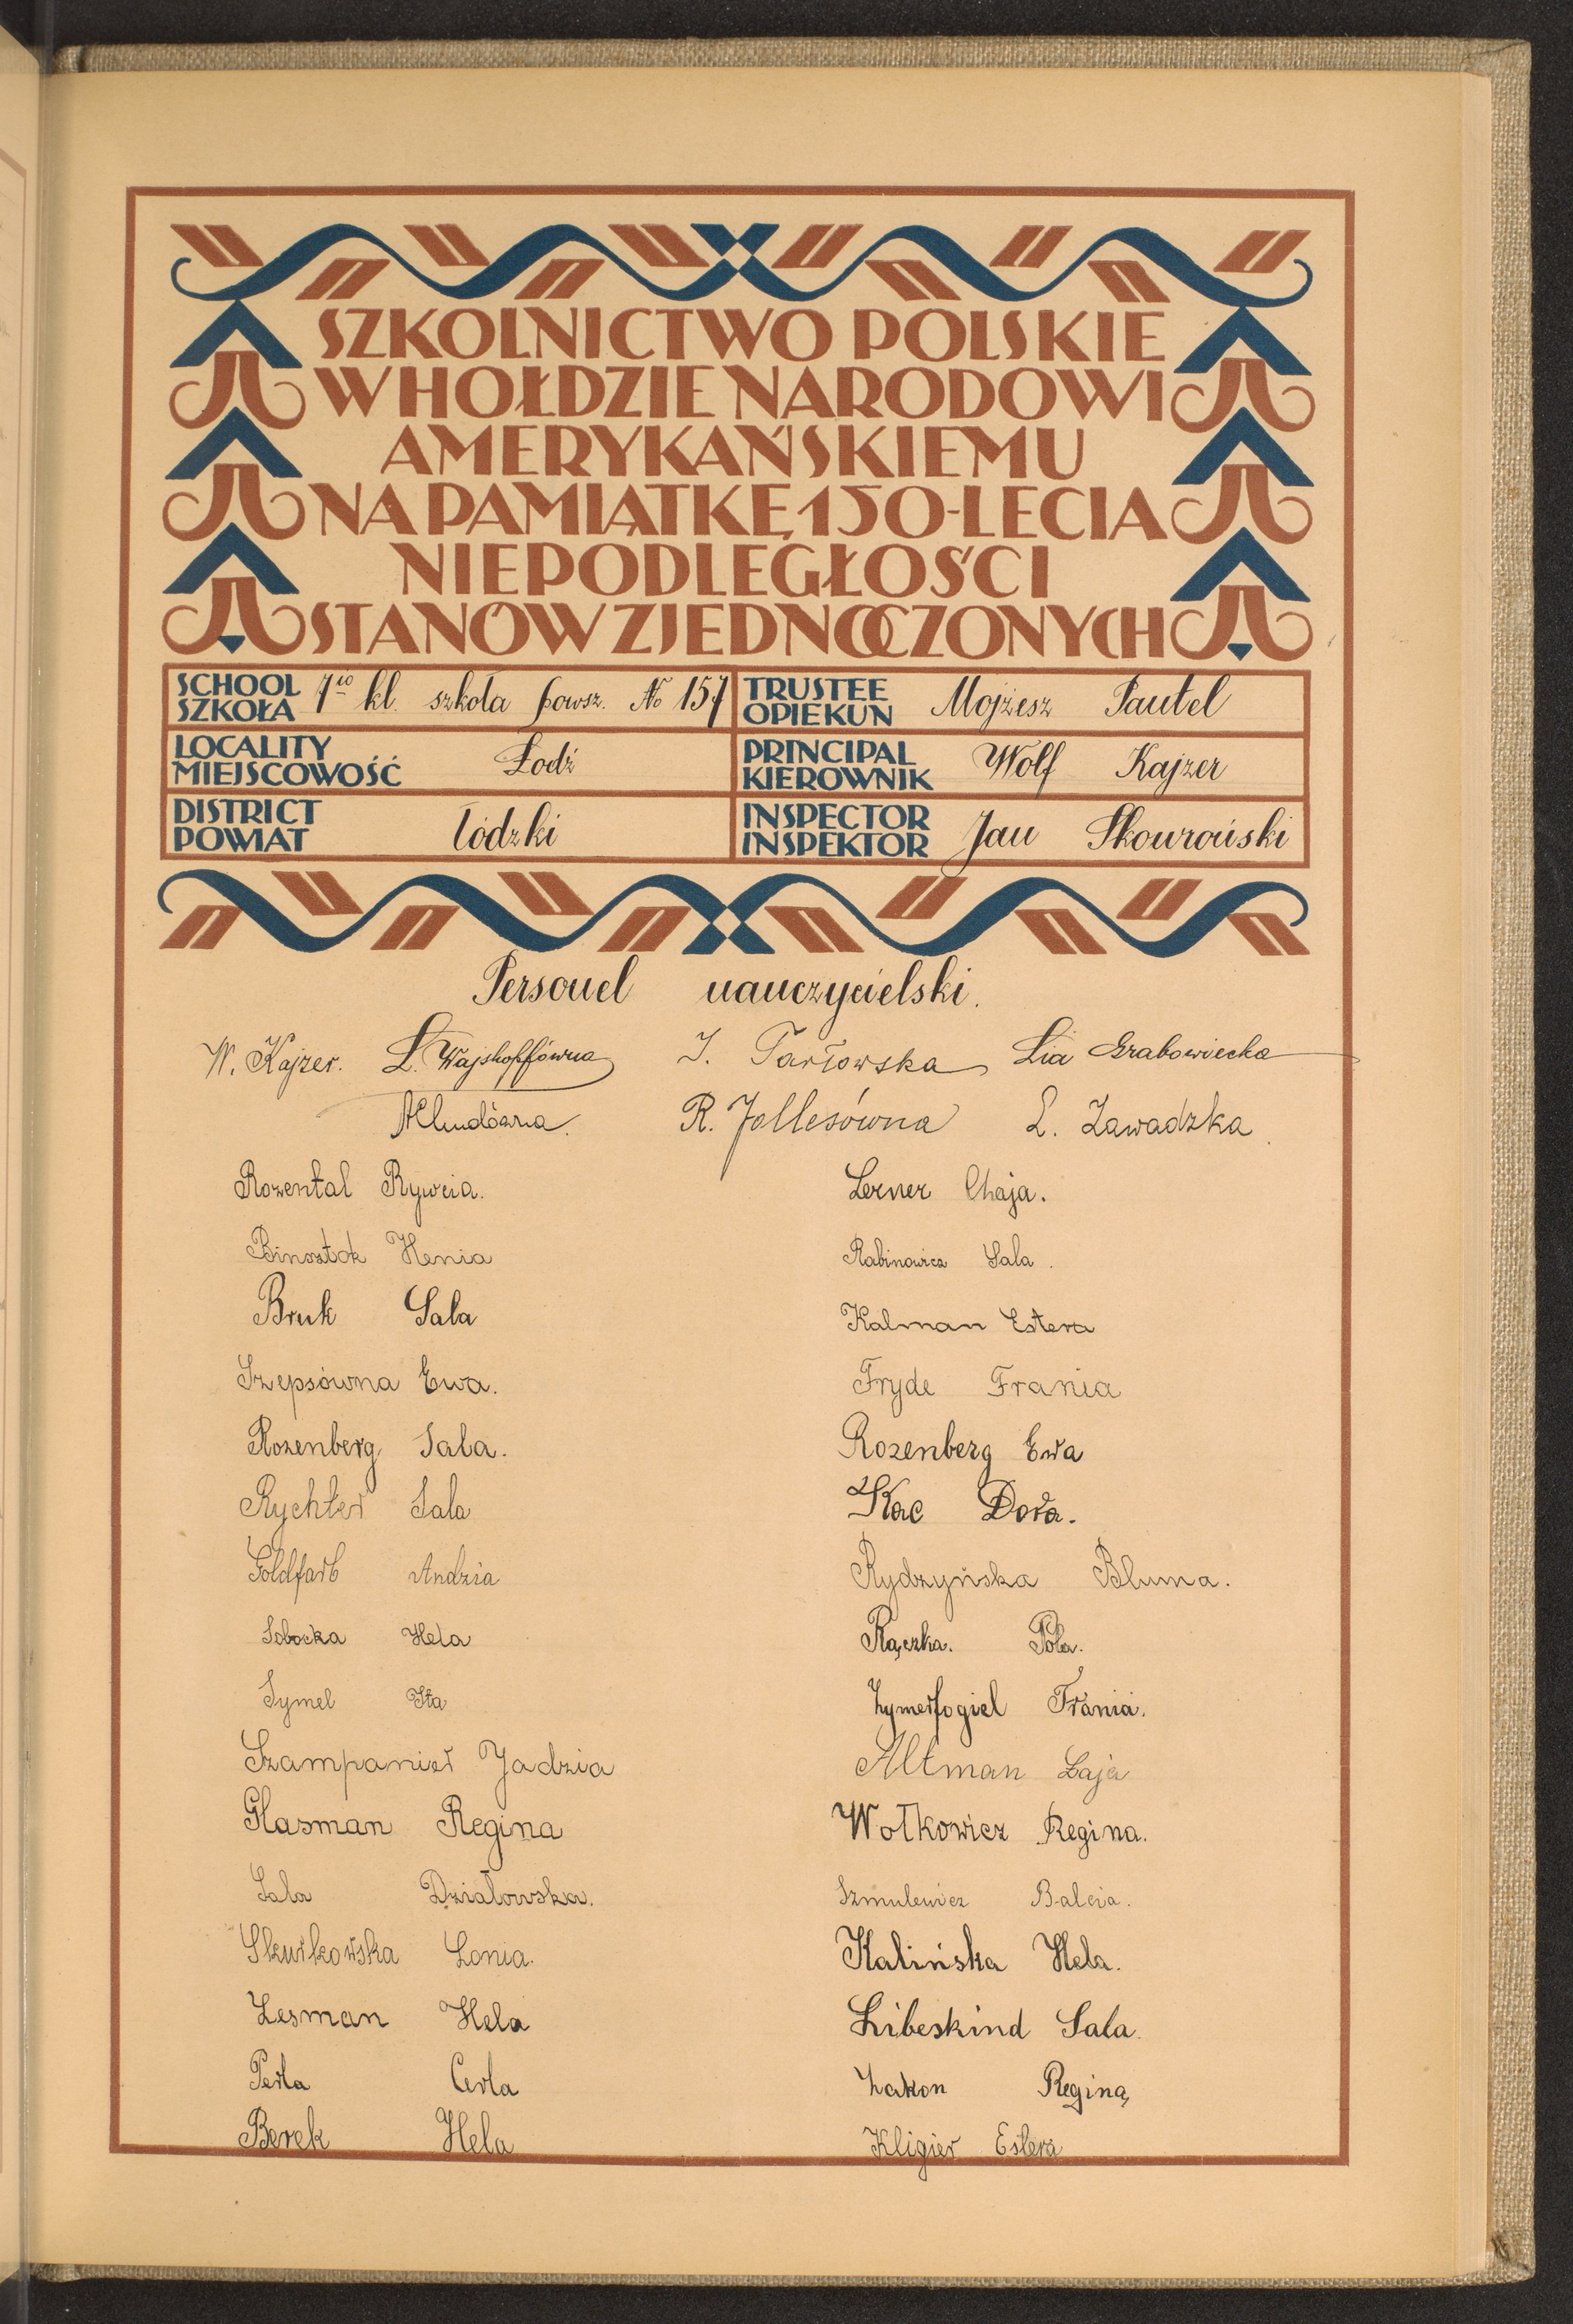 SZKOLNICTWO POLSKIE
W HOŁDZIE NARODOWI
AMERYKAŃSKIEMU
NA PAMIĄTKĘ 150-LECIA
NIEPODLEGŁOŚCI
STANÓW ZJEDNOCZONYCH
SCHOOL SZKOŁA 7io kl. szkoła powsz. No 157
TRUSTEE OPIEKUN Mojżesz Pautel
LOCALITY MIEJSCOWOŚĆ Łodź
PRINCIPAL KIEROWNIK Wolf Kajzer
DISTRICT POWIAT łódzki
INSPECTOR INSPEKTOR Jan Skowroński
Personel nauczycielski.
W. Kajzer. L. Wajskopfówna J. Tarłowska Lia Grabowiecka
R. Jollesówna L. Zawadzka
Rozental Rywcia. Lerner Chaja.
Binsztok Henia Rabinowicz Sala.
Bruk Sala Kalman Estera
Szepsówna Ewa. Fryde Frania
Rozenberg Sala. Rozenberg Ewa
Rychter Sala Kac Dora.
Goldfarb Andzia Rydzyńska Bluma.
Sobocka Hela Rączka. Pola.
Symel Ita Zymerfogiel Frania.
Szampanier Jadzia Altman Łaja
Glasman Regina Wołkowicz Regina.
Sala Działowska. Szmulewicz Balcia.
Skurkowska Lonia. Kalińska Hela.
Lesman Hela Libeskind Sala.
Perla Cerla Zakon Regina
Berek Hela Kligier Estera